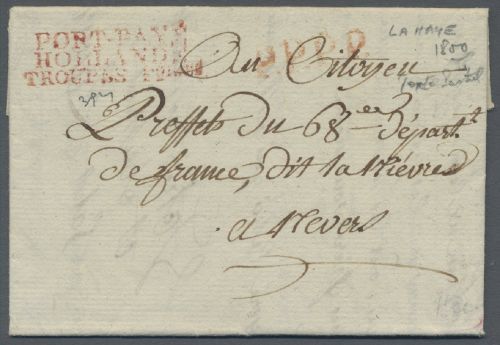 PORT-PAYÉ
HOLLANDE
TROUPES FR
P.P.P.P.
LA HAYE
1800
Au Citoyen
Preffet du 68ee Départt
de france, dit la Nièvre
a Nevers